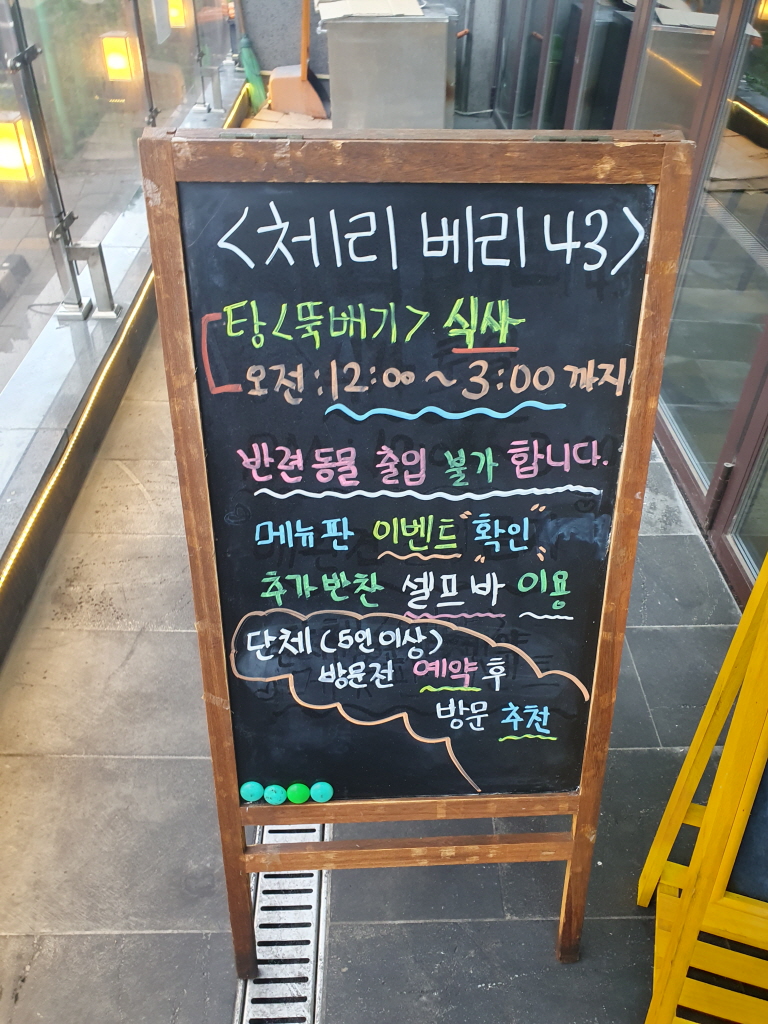 <체리 베리 43>
탕<뚝배기> 식사
오전:12:00~3:00 까지
반련동물 출입 불가 합니다.
메뉴판 이벤트 "확인"
추가반찬 셀프바 이용
단체 (5인 이상)
방문전 예약 후
방문 추천